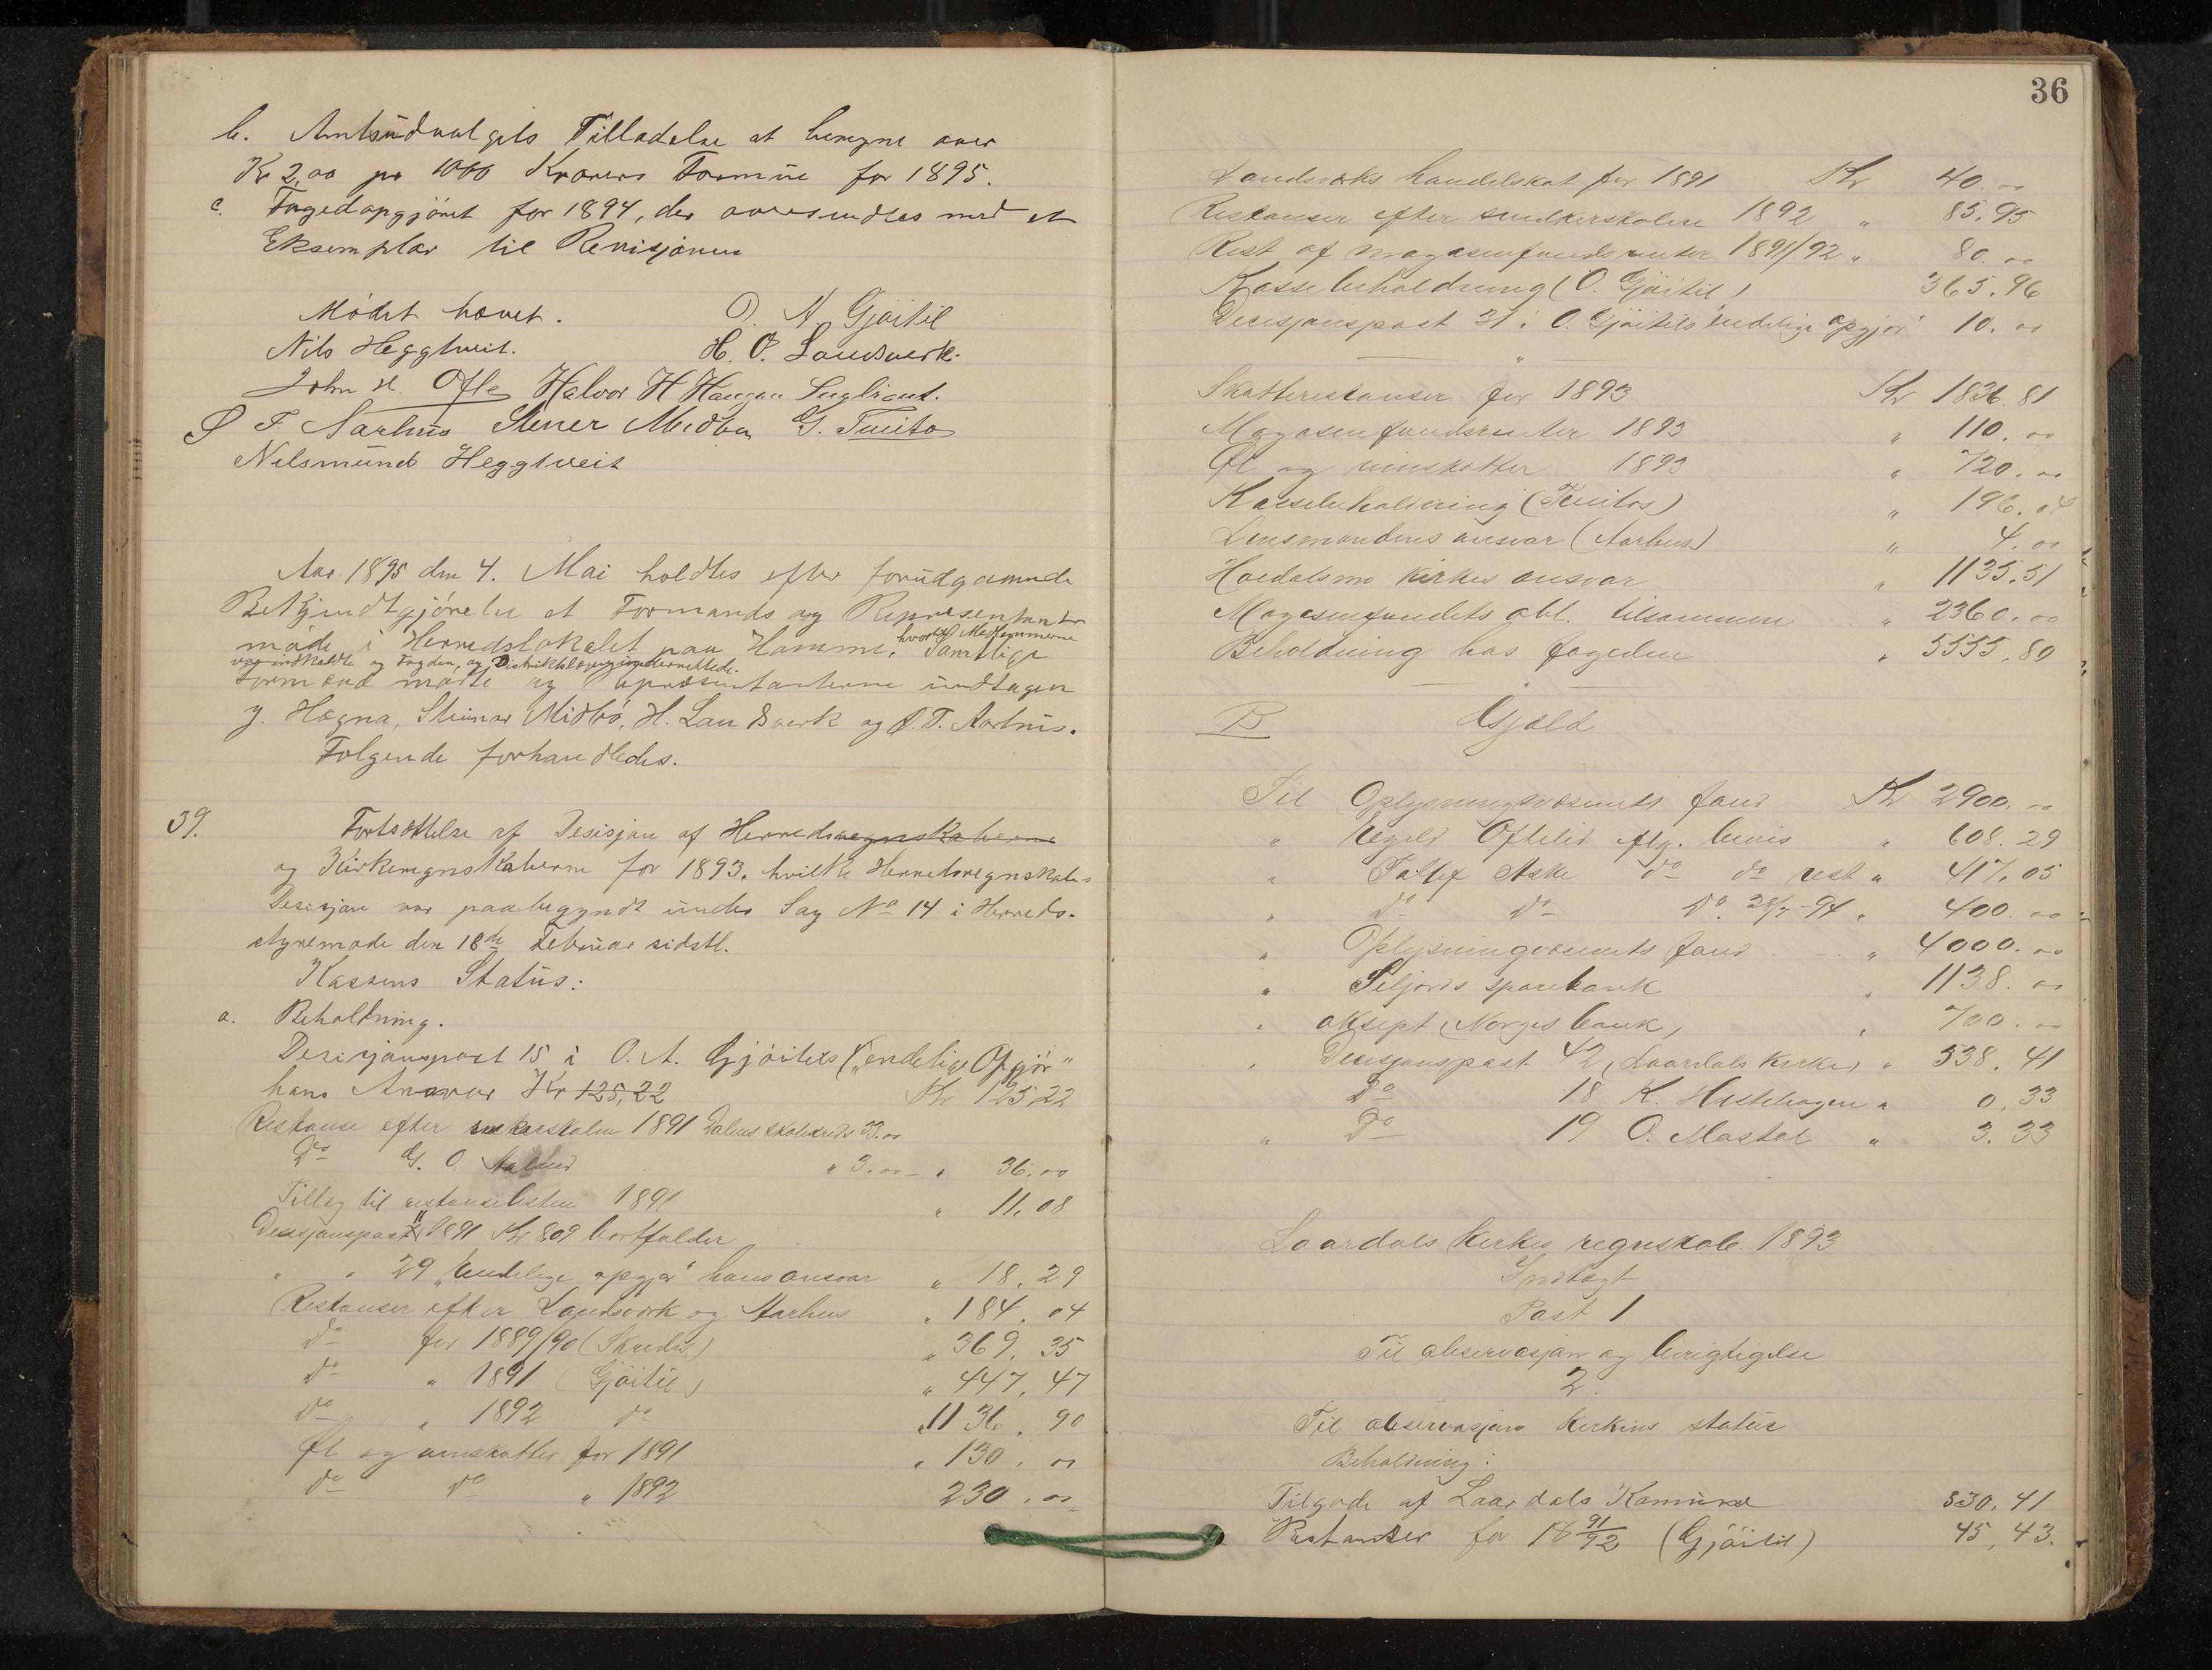 b. Amtsudvalgets Tilladelse at beregne over
Kr 2,00 pr 1000 Kroners Formue for 1895.
c. Fogedopgjöret for 1894, der oversendtes med et
Eksemplar til Revisjonen
Mödet hævet. O. A Gjöitil
Nils Heggtveit. H. O. Landsverk.
John H. Ofte Halvor H Haugen
T. Aarhus Stener Midbø G. Tveito
Nilsmund Heggtveit
Aar 1895 den 4. Mai holdtes efter forudgaaende
Bekjendtgjörelse et Formands og Representant
möde i Herredslokalet paa Hamme, hvortil Medlemmerne
var indkaldte og Fogden, og Distriktslægen underrettede. Samtlige
Formænd mödte og Repræsentanterne undtagen
Hægna, Steinar Midbö, H. Landsverk og T. Aarhus.
Følgende forhandledes.
39. Fortsættelse af Desisjon af Herredsregnskaberne
og Kirkeregnskaberne for 1893, hvilke Herredsregnskabs
Desisjon var paabegyndt under Sag No 14 i Herreds-
styremöde den 18de Februar sidstl.
Kassens Status:
a. Beholdning.
Desisjonspost 15 i O. A. Gjöitils („endelige Opgjör"
hans Ansvar Kr 125,22 Kr 125,22
Restanse efter 1891 Dalens skolekreds 33.00
Do G. O. " 3.00 " 36.00
Tillæg til restanselisten 1891 " 11,08
Desisjonspost 11 1891 Kr 8,09 bortfalder
" " 29 „Endelige opgjör" hans ansvar " 18.29
Restanser efter Landsverk og Aarhus " 184.04
Do for 1889/90 " 369.35
Do " 1891 (Gjöitil) " 447,47
Do " 1892 do " 1136.90
Øl og vinskatter for 1891 " 130.00
do do " 1892 230.00
36
Landsværks handelskat for 1891 Kr 40.00
Restanser efter 1892 " 85,95
Rest af magasinfundsrenter 1891/92 " 80.00
Kassebeholdning (O. Gjöitil) 365.96
Desisjonspost 31 i O. Gjöitils „endelige opgjör" 10.00
"
Skatterestanser for 1893 Kr 1836.81
Magasinfundsrenter 1893 " 110.00
Øl og vinskatter 1893 " 720.00
Kassebeholdning (Tveitos) " 196.04
Lensmandens ansvar (Aarhus) " 4.00
Høidalsmo kirkes ansvar " 1135,51
Magasinfundets obl. tilsammen " 2360.00
Beholdning hos fogeden " 5555,80
B Gjæld
Til Oplysningsvæsenets fond Kr 2900.00
" Eegeld Oftelid eftg. bevis " 608.29
" Tallef Aske do do rest " 417,05
" do do do 28/7-94 " 400.00
" Oplysningsvæsenets fond " 4000.00
" Siljords sparebank " 1138.00
" aksept (Norges bank) " 700.00
" Desisjonspost 42 (Laardals kirke) " 538.41
Do 18 K. Hestehagen " 0.33
" Do 19 O. Mastol " 3.33
Laardals kirkes regnskab 1893
Indtægt
Post 1
Til observasjon og berigtigelse
2.
Til observasjon kirkens status
Beholdning:
Tilgode af Laardals Kommune 530.41
Restanser for 18 91/92 (Gjöitil) 45,43.